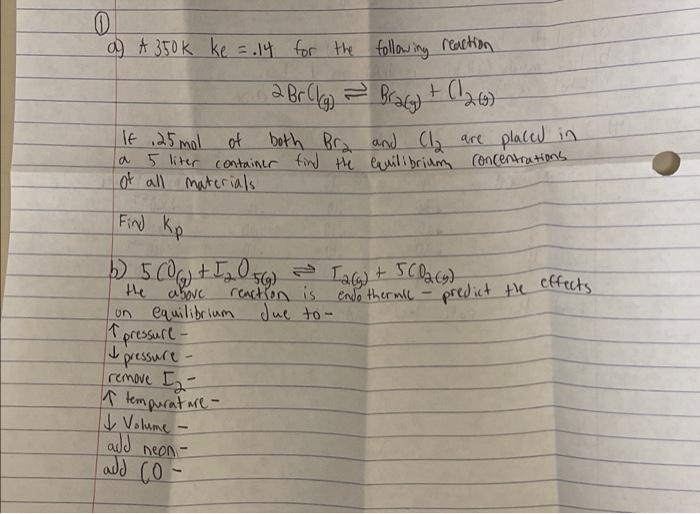 ①
a) At 350K kc = .14 for the following reaction
2BrCl(g) ⇌ Br2(g) + Cl2(g)
If .25 mol of both Br2 and Cl2 are placed in
a 5 liter container find the equilibrium concentrations
of all materials
Find Kp
b) 5CO(g) + I2O5(g) ⇌ I2(g) + 5CO2(g)
the above reaction is endothermic - predict the effects
on equilibrium due to-
↑ pressure -
↓ pressure -
remove I2 -
↑ tempurature -
↓ Volume -
add neon -
add CO -